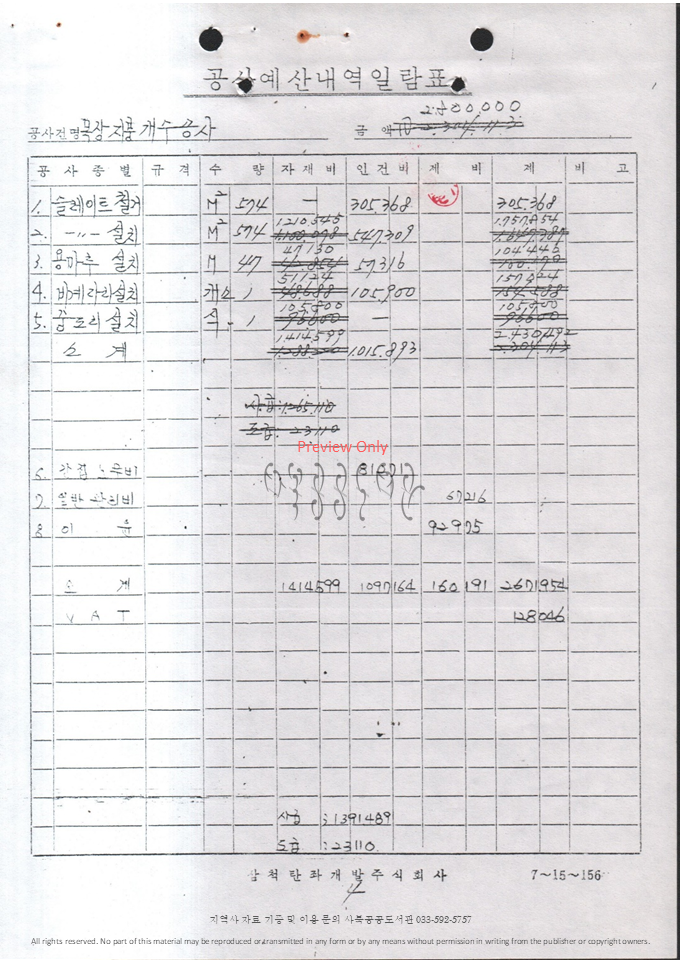 공사예산내역일람표
2.800,000
공사건명 목장지붕 개수공사 금 액 2.304.113
공 사 종 별 규 격 수 량 자 재 비 인 건 비 계 비 계 비 고
1. 슬레이트 철거 M² 574 — 305.368 305.368
1210.545 1.757.854
2. —〃— 설치 M² 574 547.309
47130 104.446
3. 용마루 설치 M 47 57.316
51.124 157.024
4. 비계다리설치 개소 1 105.900
105,800 105,800
5. 설치 식 1 96600 — 96600
1414599 2.430.492
소 계 1.015.893 2.304.113
사급:1.265.110
도급: 23110
Preview Only
6. 간접노무비 81271
7. 일반관리비 67216
8. 이 윤 92975
소 계 1414599 1097164 160191 2671954
V A T 128046
사급 : 1391489
도급 : 23110
삼척탄좌개발주식회사 7~15~156
4
지역사 자료 기증 및 이용 문의 사북공공도서관 033-592-5757
All rights reserved. No part of this material may be reproduced or transmitted in any form or by any means without permission in writing from the publisher or copyright owners.